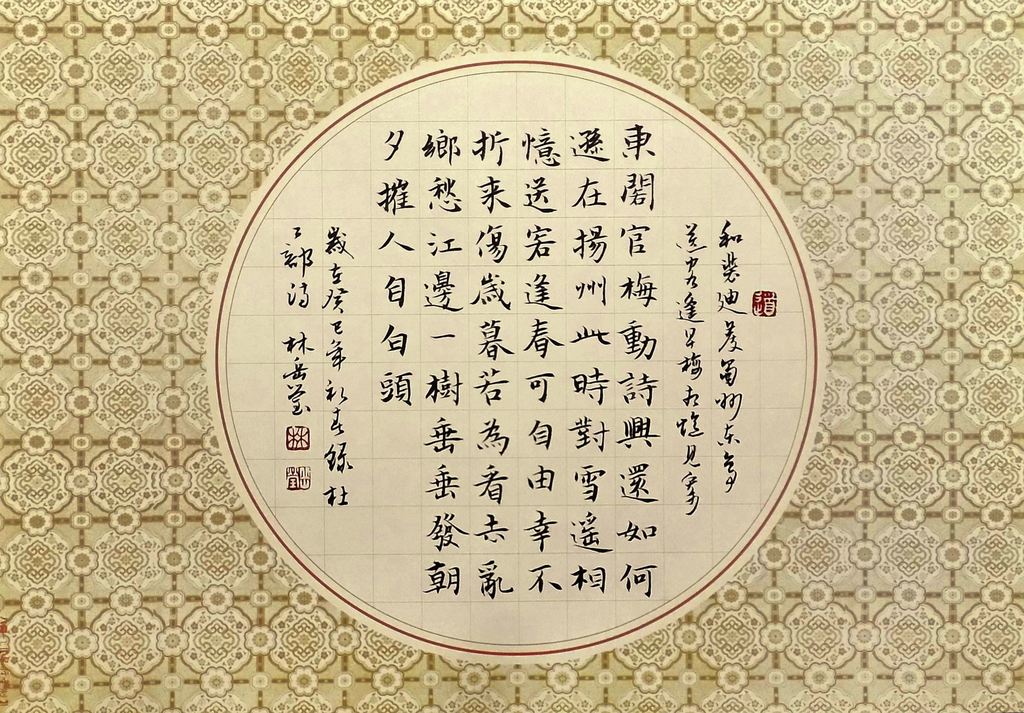 和裴迪登蜀州東亭
送客逢早梅相憶見寄
東閣官梅動詩興還如何
遜在揚州此時對雪遥相
憶送客逢春可自由幸不
折来傷歲暮若為看去亂
鄉愁江邊一樹垂垂發朝
夕摧人自白頭
歲在癸巳年初春錄杜
工部詩 林岳瑩
林